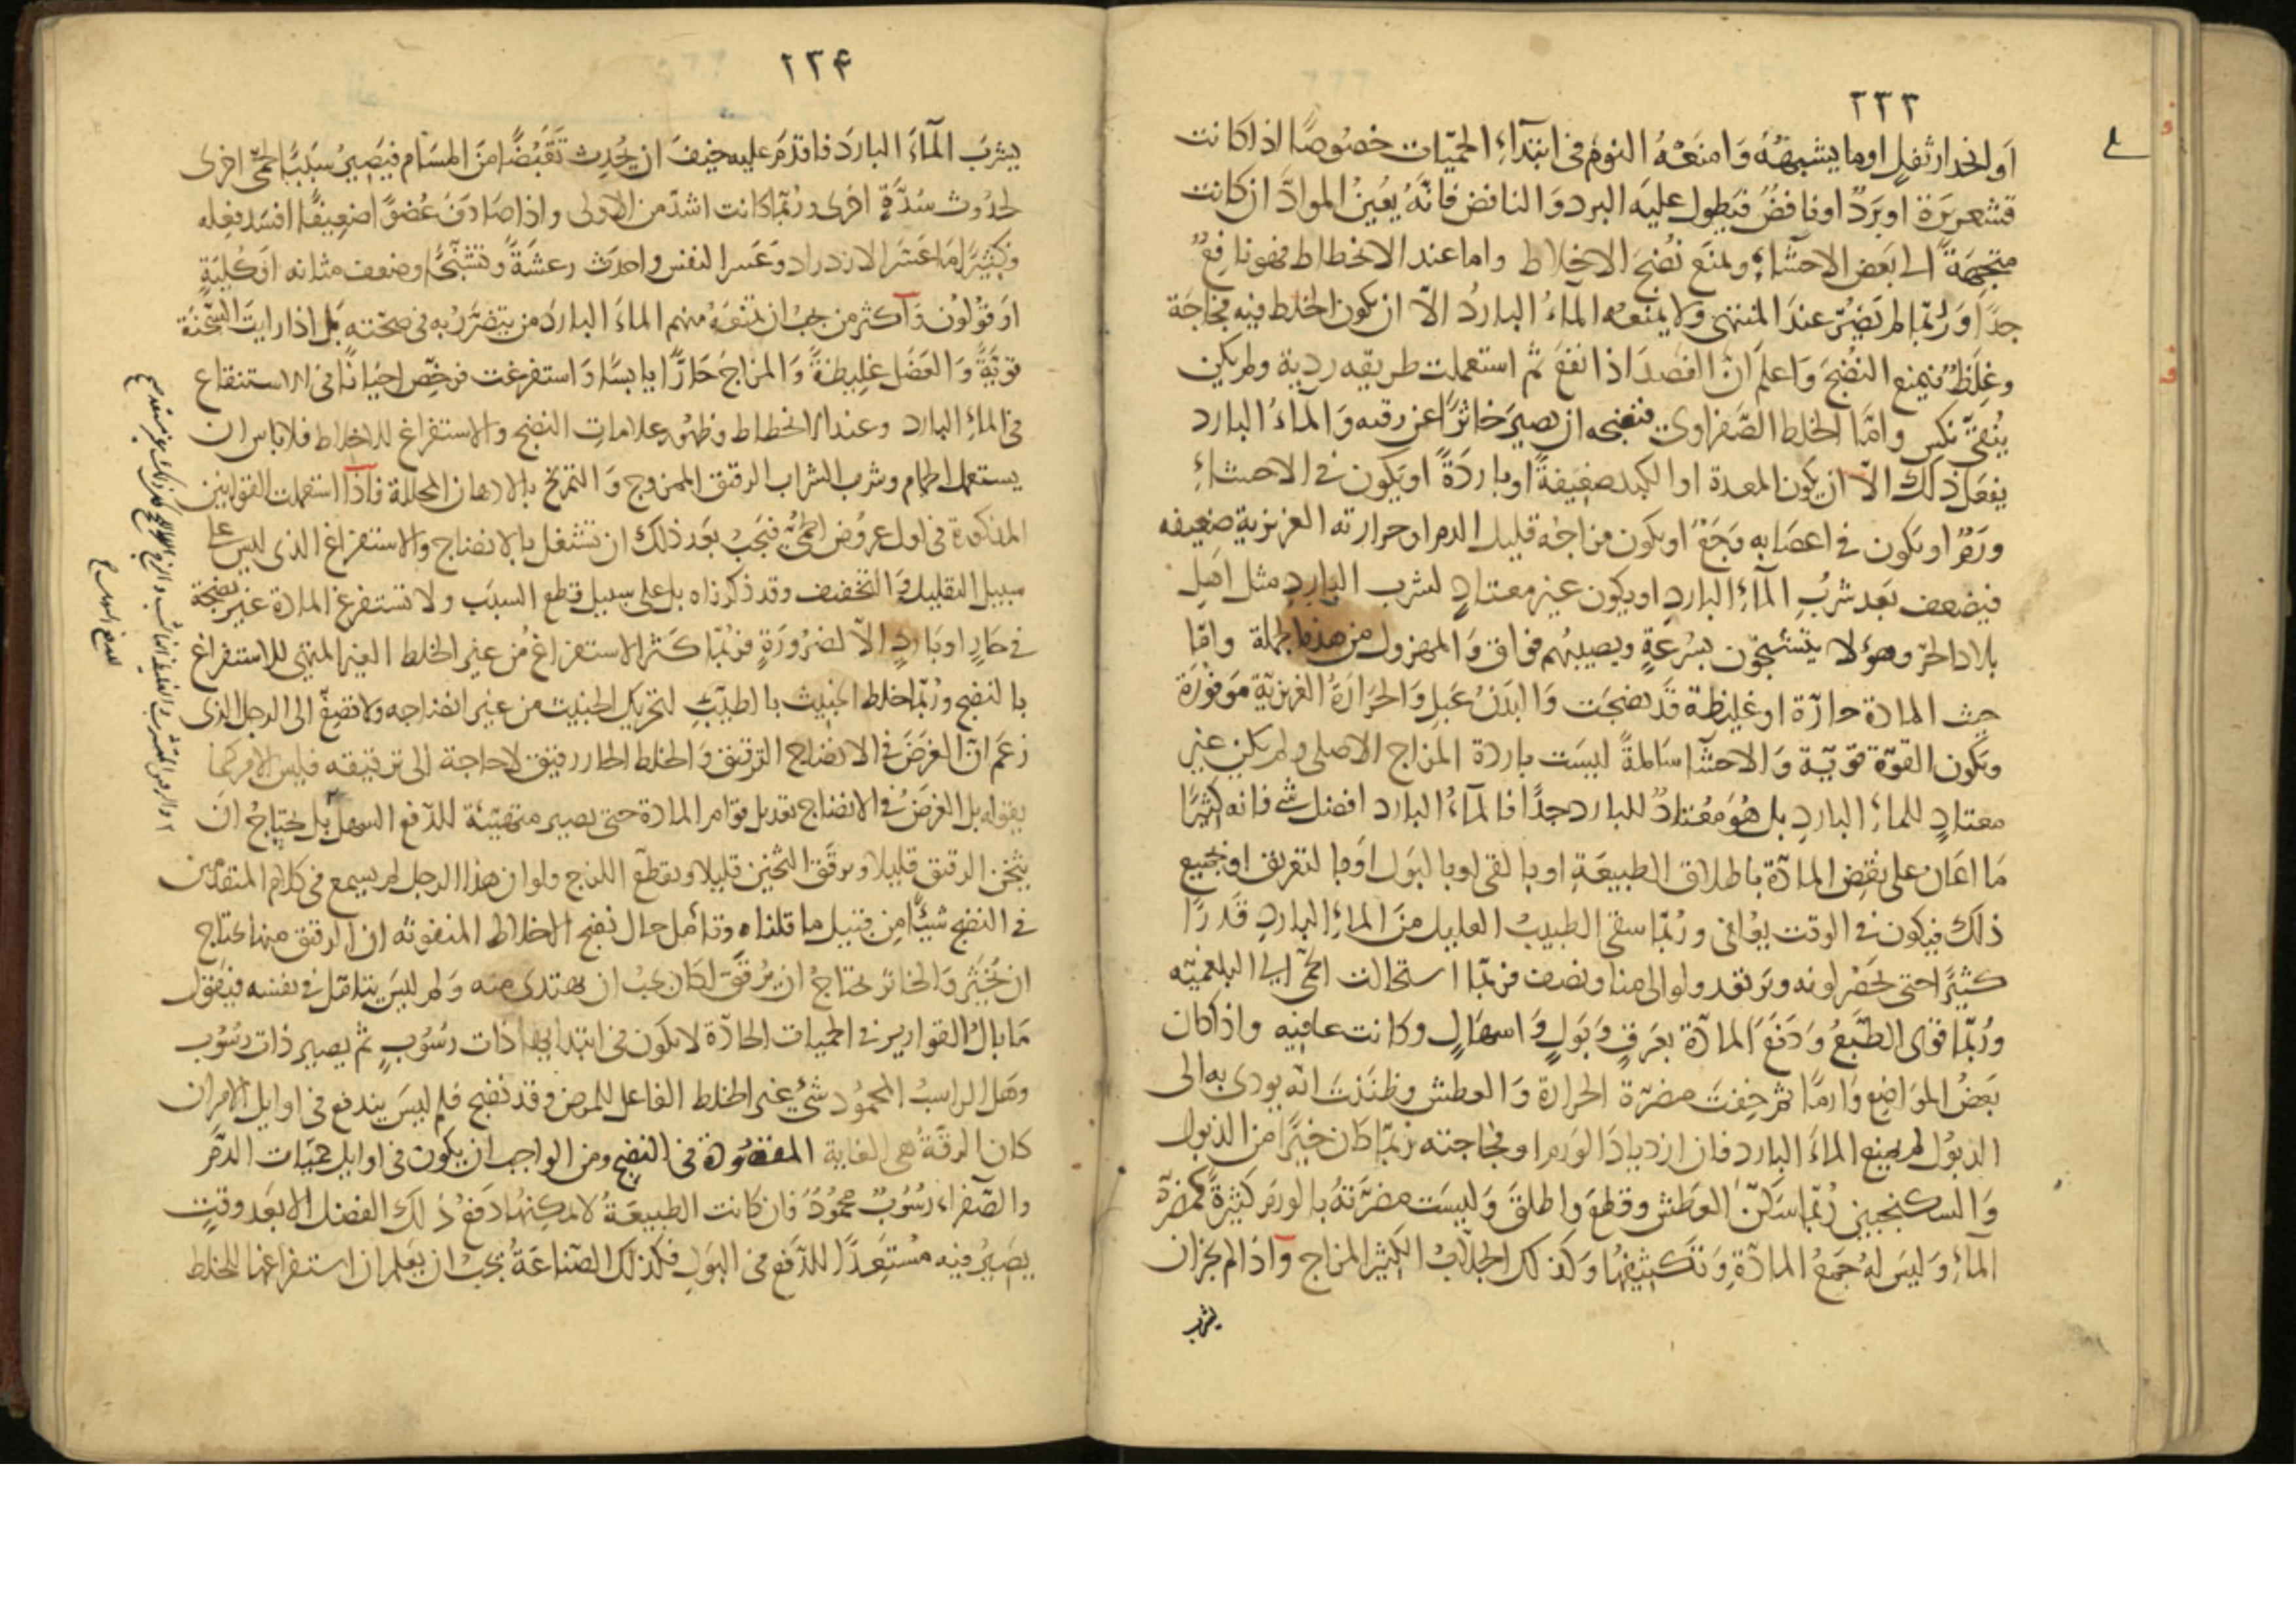 ٢٣٣
او انحدار ثفل او ما يشبهه وامنعه النوم فى ابتداء الحميات خصوصا اذا كانت
قشعريرة او برد او نافض فيطول عليه البرد والنافض فانه يعين المواد ان كانت
متجهة الى بعض الاحشاء ولمنع نضج الاخلاط واما عند الانحطاط فهو نافع
جدا وربما لم يضر عند المنتهى ولا يمنعه الماء البارد الا ان يكون الخلط فيه فجاجة
وغلظ فيمنع النضج واعلم ان الفصد اذا نفع ثم استعملت طريقه ردية ولم يكن
ينقى نكس واما الخلط الصفراوى فنضجه ان يصير خاثرا عن رقته والماء البارد
يفعل ذلك الا ان يكون المعدة او الكبد ضعيفة او باردة او يكون فى الاحشاء
ورم او يكون فى اعصابه وجع او يكون مزاجه قليل الدم او حرارته الغريزية ضعيفه
فيضعف بعد شرب الماء البارد او يكون غير معتاد لشرب البارد مثل اهل
بلاد الحر وهؤلا يتشنجون بسرعة ويصيبهم فواق والمهزول من هذه الجملة واما
حيث المادة حارة او غليظة قد نضجت والبدن عبل والحرارة الغريزية موفورة
ويكون القوة قوية والاحشا سالمة ليست باردة المزاج الاصلى ولم يكن غير
معتاد للماء البارد بل هو معتاد للبارد جدا فالماء البارد افضل شى فانه كثيرا
ما اعان على نفض المادة باطلاق الطبيعة او بالقى او بالبول او بالتعريق او بجميع
ذلك فيكون فى الوقت يعافى وربما سقى الطبيب العليل من الماء البارد قدرا
كثيرا حتى يخضر لونه ويرتعد ولو الى منا ونصف فربما استحالت الحمى الى البلغميه
وربما قوى الطبع ودفع المادة بعرق وبول واسهال وكانت عافيه واذا كان
بعض المواضع وارما ثم خفت مضرة الحرارة والعطش وظننت انه يودى به الى
الذبول لم يمنع الماء البارد فان ازدياد الورم او فجاجته ربما كان خيرا من الذبول
والسكنجبين ربما سكن العطش وقطع واطلق وليست مضرته بالورم كثيرة كمضرة
الماء وليس له جمع المادة وتكثيفها وكذلك الجلاب الكثير المزاج واذا لم يجز ان
يشرب
٢٣۴
يشرب الماء البارد فاقدم عليه خيف ان يحدث تقبضا من المسام فيصير سببا لحمى اخرى
لحدوث سدة اخرى وربما كانت اشد من الاولى واذا صادف عضوا ضعيفا افسد فعله
وكثيرا ما عسر الازدراد وعسر النفس واحدث رعشة وتشنجا وضعف مثانه او كلية
او قولون واكثر من يجب ان تمنعه منهم الماء البارد من يتضرر به فى صحته بل اذا رايت السحنة
قوية والعضل غليظة والمزاج حارا يابسا واستفرغت فرخص احيانا فى الاستنقاع
فى الماء البارد وعند الانحطاط وظهور علامات النضج والاستفراغ للاخلاط فلا باس ان
يستعمل الحمام وشرب الشراب الرقيق الممزوج والتمريخ بالادهان المحللة فاذا استعملت القوانين
المذكورة فى اول عروض الحمى فيجب بعد ذلك ان تشتغل بالانضاج والاستفراغ الذى ليس على
سبيل التقليل والتخفيف وقد ذكرناه بل على سبيل قطع السبب ولا تستفرغ المادة غير نضيجة
فى حار او بارد الا لضرورة فربما كثر الاستفراغ من غير الخلط الغير المتهئ للاستفراغ
بالنضج وربما خلط الخبيث بالطيب لتحريك الخبيث من غير انضاجه ولا تصغ الى الرجل الذى
زعم ان الغرض فى الانضاج الترقيق والخلط الحار رقيق لا حاجة الى ترقيقه فليس الامر كما
يقوله بل الغرض فى الانضاج تعديل قوام المادة حتى يصير متهيئة للدفع السهل بل يحتاج ان
يثخن الرقيق قليلا ويرقق الثخين قليلا ويقطع اللزج ولو ان هذا الرجل لم يسمع فى كلام المتقدمين
فى النضج شيئا من قبيل ما قلناه وتامل حال نضج الاخلاط المنفوثه ان الرقيق منها يحتاج
ان يخثر والخاثر يحتاج ان يرقق لكان يجب ان يهتدى منه ولم ليس يتامل فى نفسه فيقول
ما بال القوارير فى الحميات الحادة لا يكون فى ابتدايها ذات رسوب ثم يصير ذات رسوب
وهل الراسب المحمود شئ غير الخلط الفاعل للمرض وقد نضج فلم ليس يندفع فى اوايل الامر ان
كان الرقة هى الغاية المقصودة فى النضج ومن الواجب ان يكون فى اوايل حميات الدم
والصفراء رسوب محمود فان كانت الطبيعة لا يمكنها دفع ذلك الفضل الا بعد وقت
يصير فيه مستعدا للدفع فى البول فكذلك الصناعة يجب ان يعلم ان استفراغها للخلط